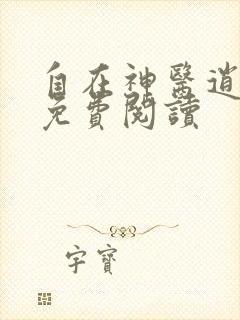 自在神醫逍
免費閱讀
字寶